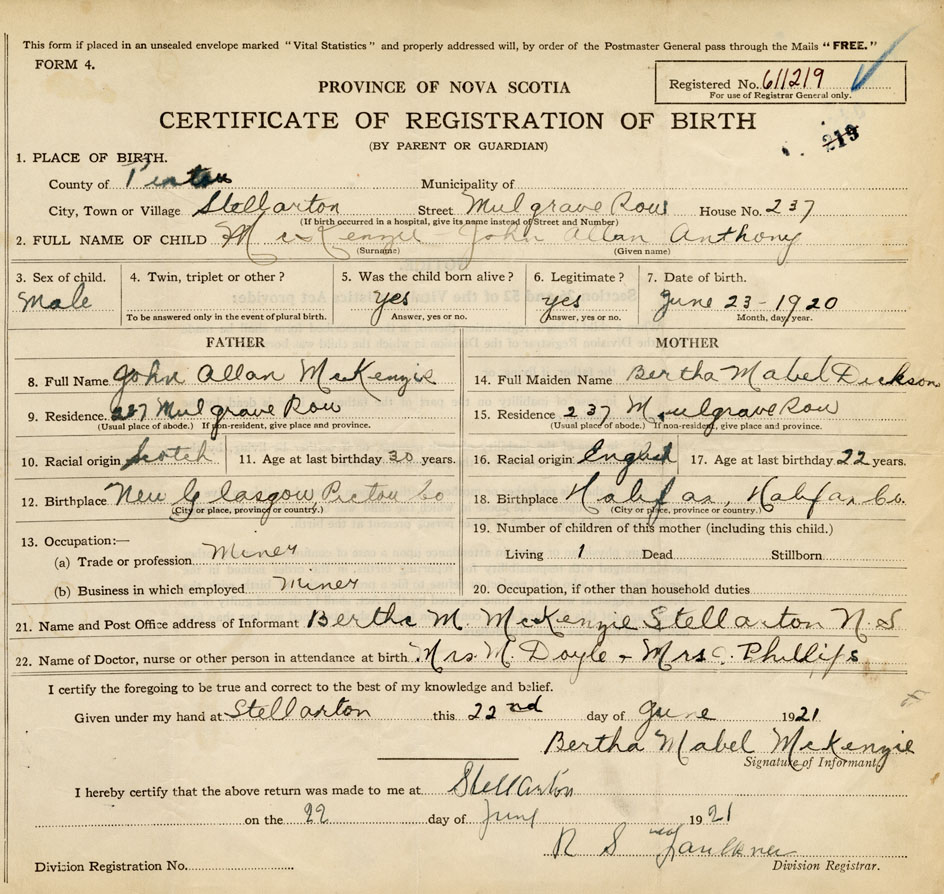 This form if placed in an unsealed envelope marked "Vital Statistics" and properly addressed will, by order of the Postmaster General pass through the Mails "FREE."
FORM 4.
PROVINCE OF NOVA SCOTIA
Registered No. 611219
For use of Registrar General only.
CERTIFICATE OF REGISTRATION OF BIRTH
219
(BY PARENT OR GUARDIAN)
1. PLACE OF BIRTH.
County of Pictou Municipality of
City, Town or Village Stellarton Street Mulgrave Row House No. 237
(If birth occurred in a hospital, give its name instead of Street and Number)
2. FULL NAME OF CHILD McKenzie - John Allan Anthony
(Surname) (Given name)
3. Sex of child. 4. Twin, triplet or other? 5. Was the child born alive? 6. Legitimate? 7. Date of birth.
Male yes yes June 23-1920
To be answered only in the event of plural birth. Answer, yes or no. Answer, yes or no. Month, day, year.
FATHER MOTHER
8. Full Name John Allan McKenzie 14. Full Maiden Name Bertha Mabel Dickson
9. Residence 237 Mulgrave Row 15. Residence 237 Moulgrave Row
(Usual place of abode.) If non-resident, give place and province. (Usual place of abode.) If non-resident, give place and province.
10. Racial origin Scotch 11. Age at last birthday 30 years. 16. Racial origin English 17. Age at last birthday 22 years.
12. Birthplace New Glasgow Pictou Co 18. Birthplace Halifax, Halifax Co.
(City or place, province or country.) (City or place, province or country.)
13. Occupation:— 19. Number of children of this mother (including this child.)
(a) Trade or profession Miner Living 1 Dead Stillborn
(b) Business in which employed Miner 20. Occupation, if other than household duties
21. Name and Post Office address of Informant Bertha M. McKenzie Stellarton N.S
22. Name of Doctor, nurse or other person in attendance at birth Mrs M. Doyle - Mrs C. Phillips
I certify the foregoing to be true and correct to the best of my knowledge and belief.
Given under my hand at Stellarton this 22nd day of June 1921
Bertha Mabel McKenzie
Signature of Informant
I hereby certify that the above return was made to me at Stellarton
on the 22 day of June 1921
R S Faulkner
Division Registration No. Division Registrar.